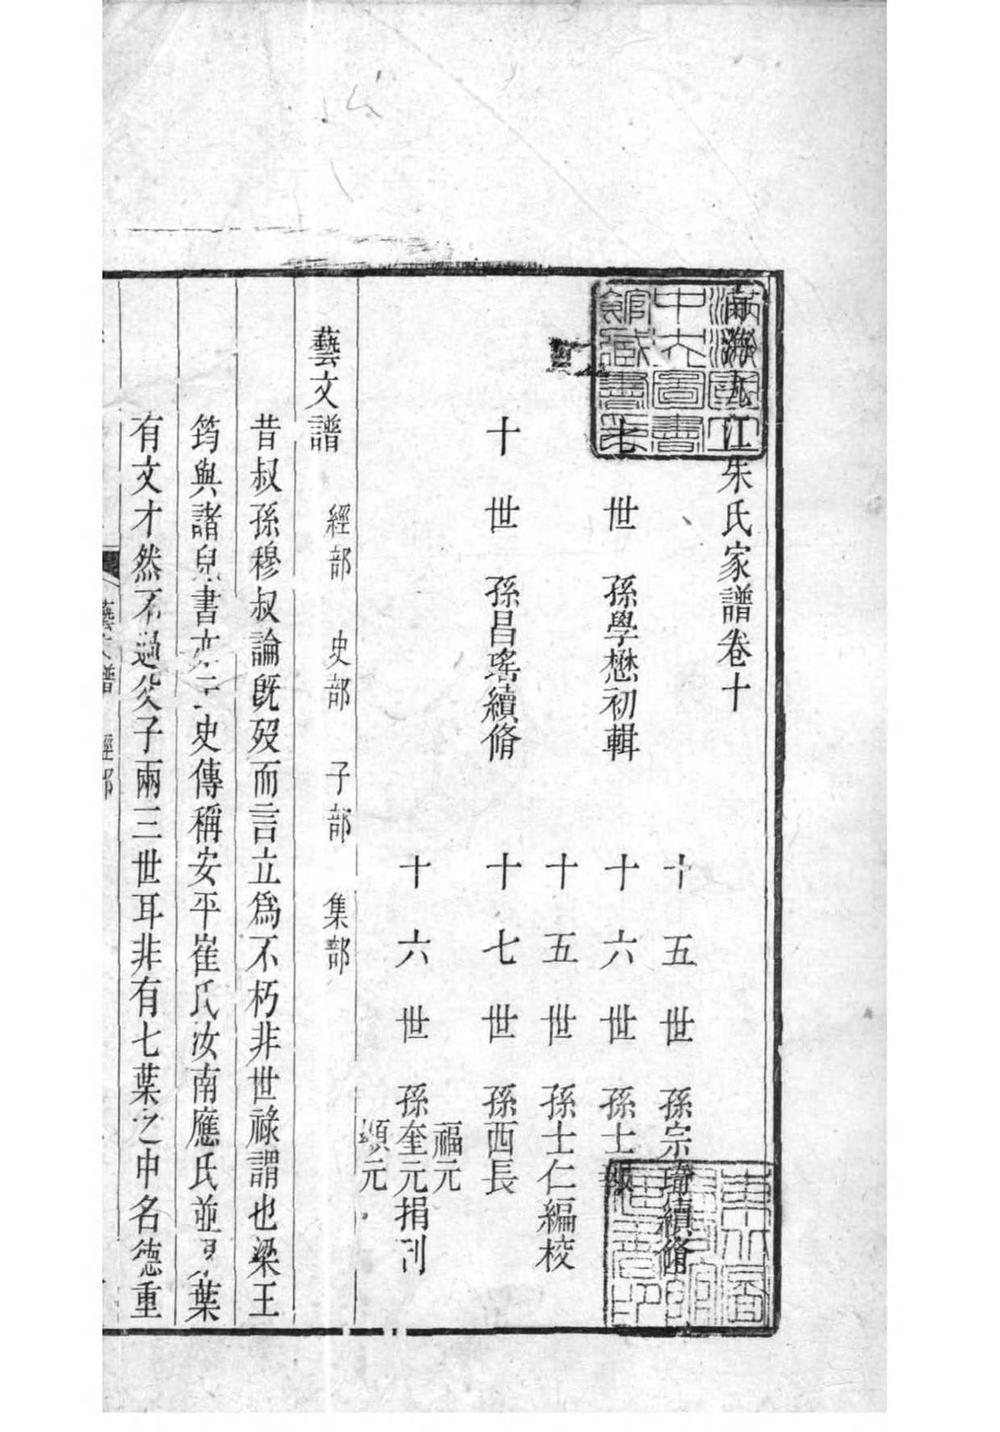 南海九江朱氏家譜卷十
十五世 孫宗琦續脩
七世 孫學懋初輯 十六世 孫士報
十五世 孫士仁編校
十世 孫昌瑤續脩 十七世 孫西長
福元
十六世 孫奎元捐刊
顯元
藝文譜 經部 史部 子部 集部
昔叔孫穆叔論旣歿而言立爲不朽非世祿謂也梁王
筠與諸兒書亦云史傳稱安平崔氏汝南應氏並累葉
有文才然不過父子兩三世耳非有七葉之中名德重
藝文譜 經部